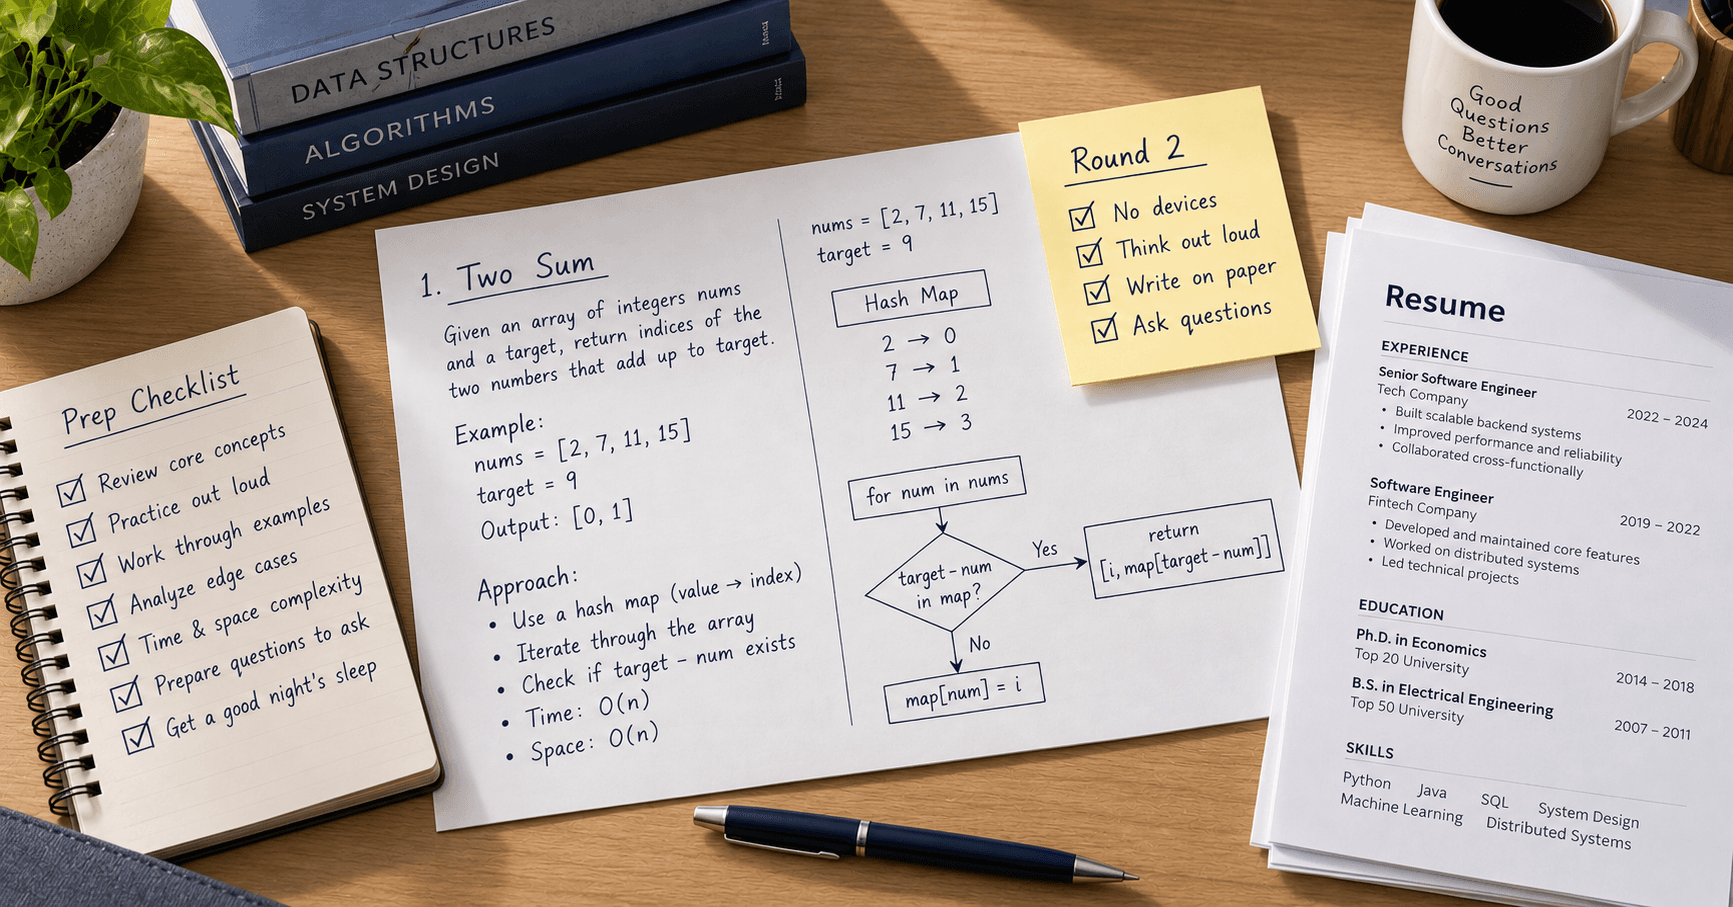 DATA STRUCTURES
ALGORITHMS
SYSTEM DESIGN
Good
Questions
Better
Conversations
Prep Checklist
Review core concepts
Practice out loud
Work through examples
Analyze edge cases
Time & space complexity
Prepare questions to ask
Get a good night's sleep
1. Two Sum
Given an array of integers nums
and a target, return indices of the
two numbers that add up to target.
Example:
nums = [2, 7, 11, 15]
target = 9
Output: [0, 1]
Approach:
• Use a hash map (value → index)
• Iterate through the array
• Check if target – num exists
• Time: O(n)
• Space: O(n)
nums = [2, 7, 11, 15]
target = 9
Hash Map
2 → 0
7 → 1
11 → 2
15 → 3
for num in nums
target – num
in map?
Yes
return
[i, map[target – num]]
No
map[num] = i
Round 2
No devices
Think out loud
Write on paper
Ask questions
Resume
EXPERIENCE
Senior Software Engineer
Tech Company 2022 – 2024
• Built scalable backend systems
• Improved performance and reliability
• Collaborated cross-functionally
Software Engineer
Fintech Company 2019 – 2022
• Developed and maintained core features
• Worked on distributed systems
• Led technical projects
EDUCATION
Ph.D. in Economics
Top 20 University 2014 – 2018
B.S. in Electrical Engineering
Top 50 University 2007 – 2011
SKILLS
Python Java SQL System Design
Machine Learning Distributed Systems